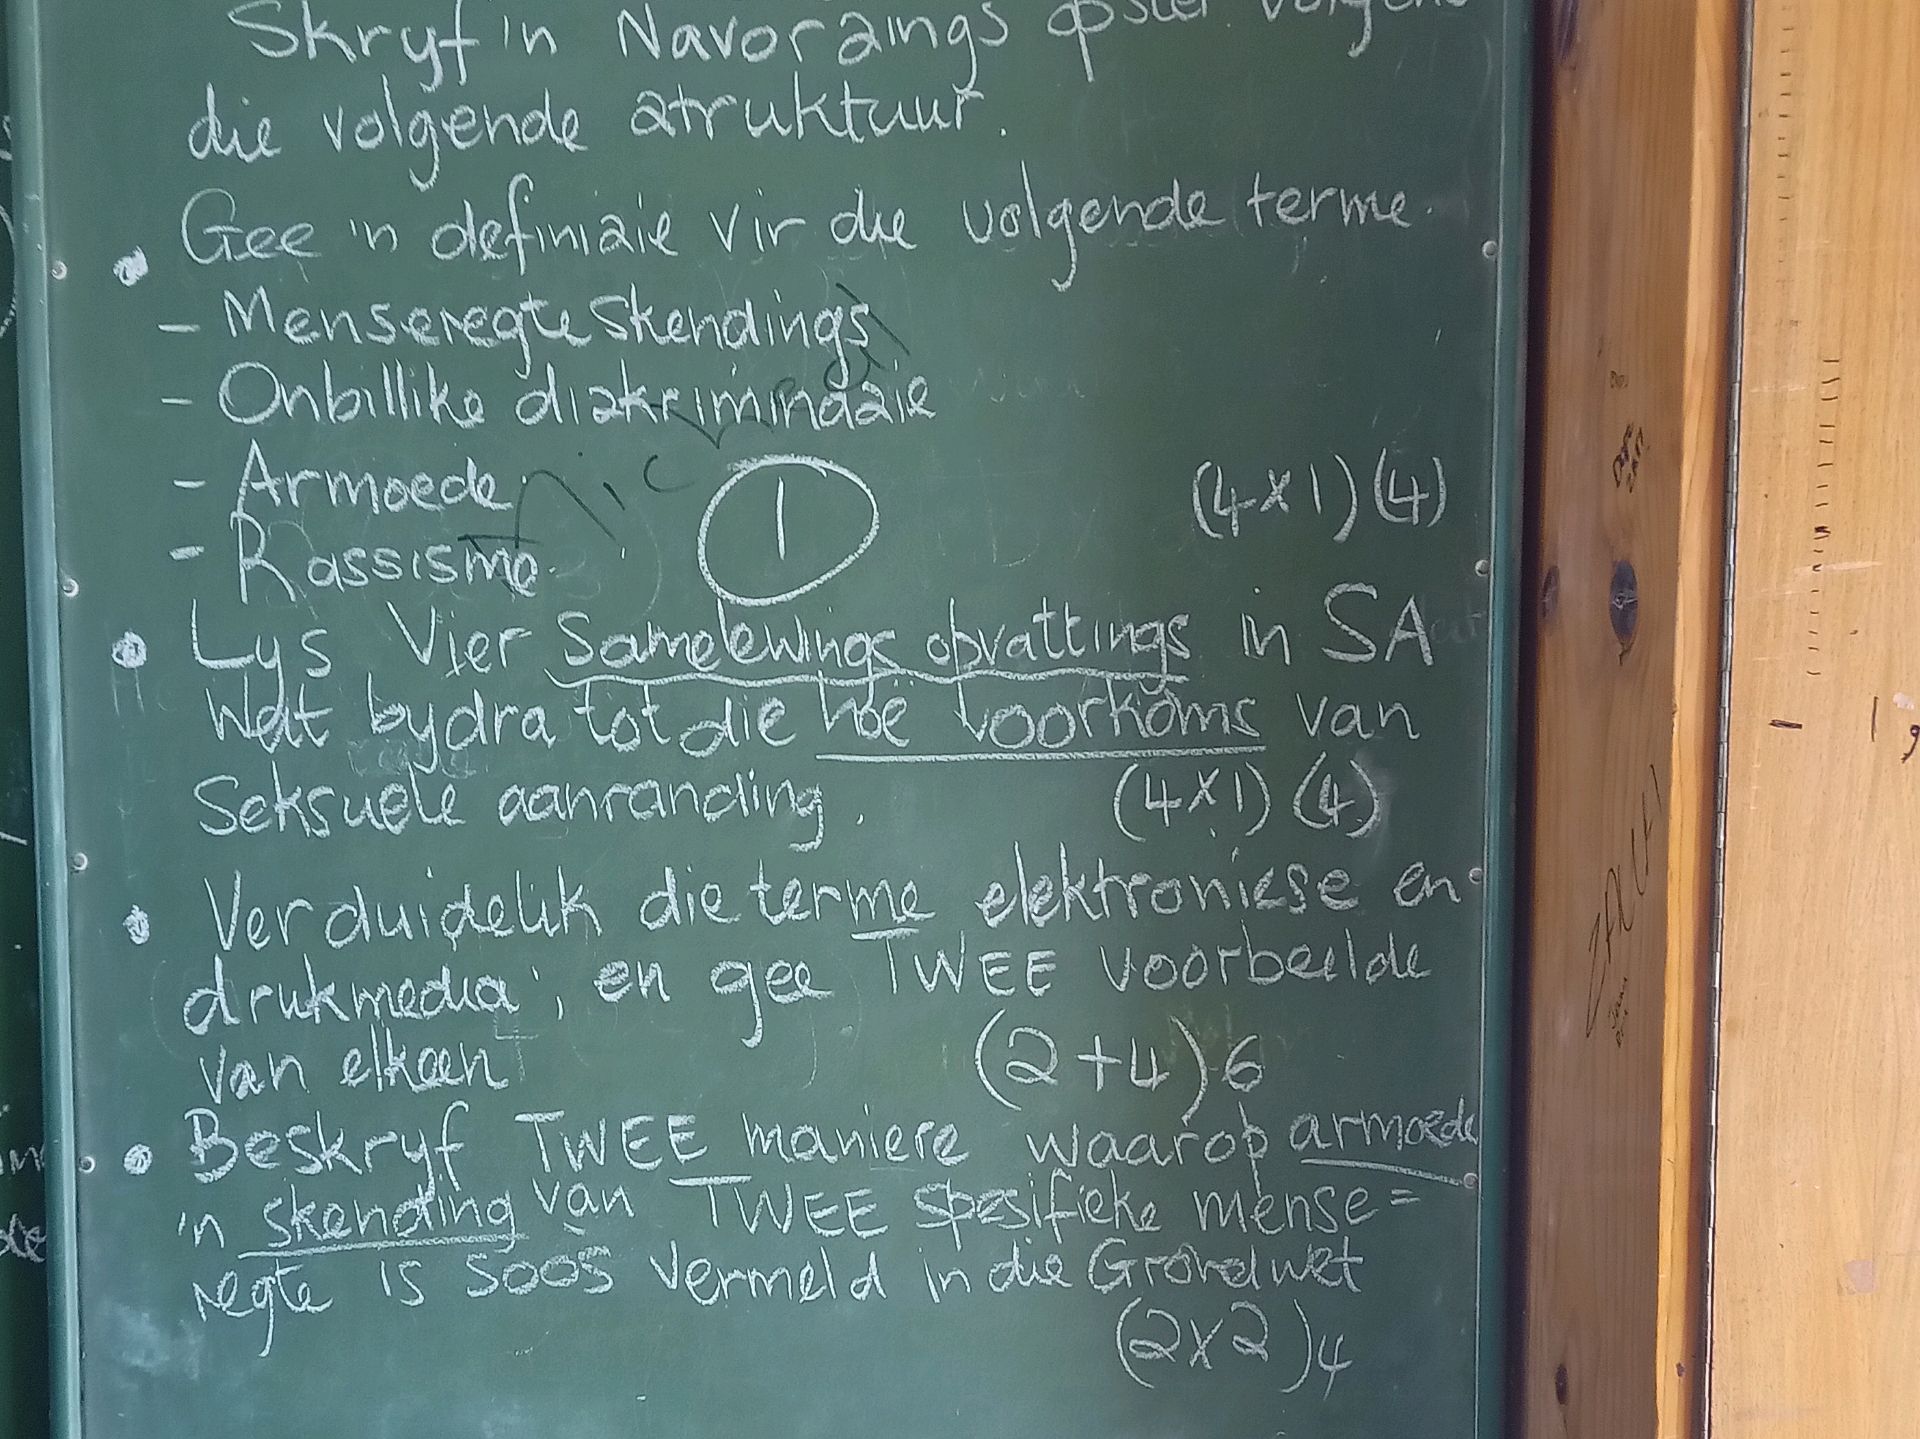 Skryf 'n Navorsings opstel volgens
die volgende struktuur.
Gee 'n definisie vir die volgende terme.
- Menseregte Skendings
- Onbillike diskriminasie
- Armoede
(4x1)(4)
- Rassisme
1
• Lys Vier Samelewings opvattings in SA
Wat bydra tot die hoë voorkoms van
Seksuele aanranding.
(4x1) (4)
• Verduidelik die terme elektroniese en
drukmedia; en gee TWEE voorbeelde
van elkeen
(2+4)6
• Beskryf TWEE maniere waarop armoede
'n skending van TWEE spesifieke mense=
regte is soos vermeld in die Grondwet
(2x2)4